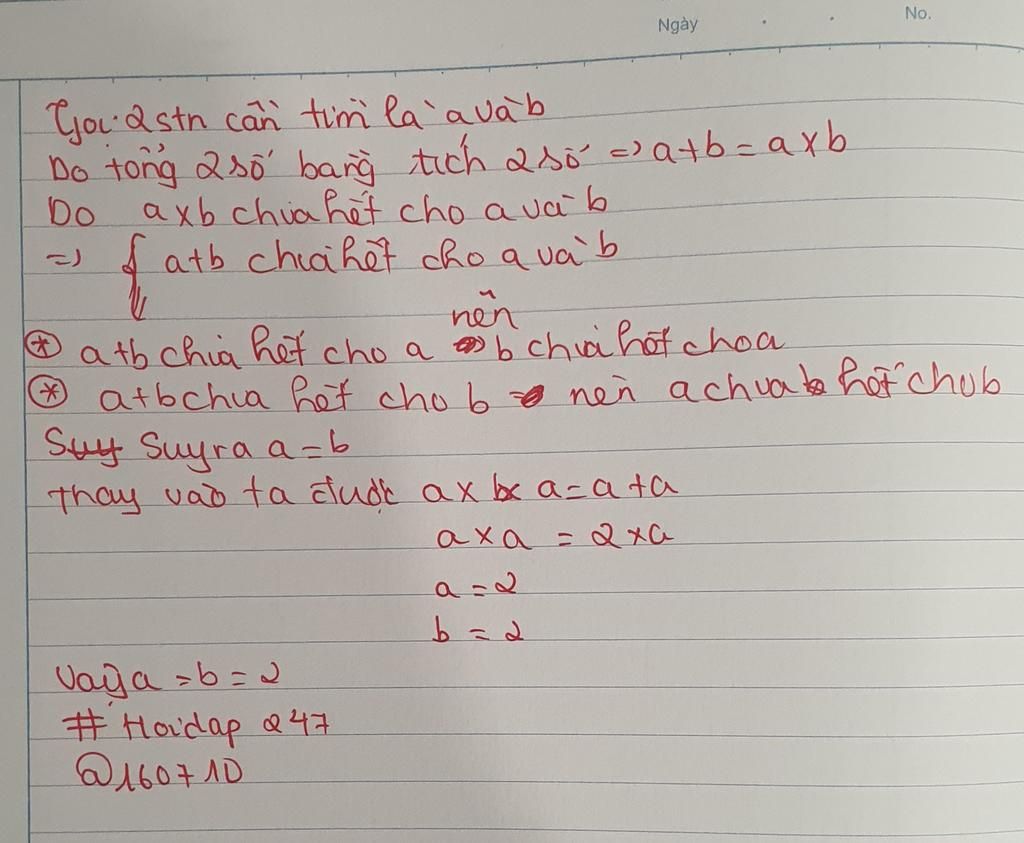 Ngày
No.
Gọi 2 stn cần tìm là a và b
Do tổng 2 số bằng tích 2 số => a+b = a x b
Do a x b chia hết cho a và b
=> { a+b chia hết cho a và b
nên
* a+b chia hết cho a b chia hết cho a
* a+b chia hết cho b nên a chia hết cho b
Suy Suy ra a = b
Thay vào ta được a x a = a + a
a x a = 2 x a
a = 2
b = 2
Vậy a = b = 2
# Hoidap 247
@160710